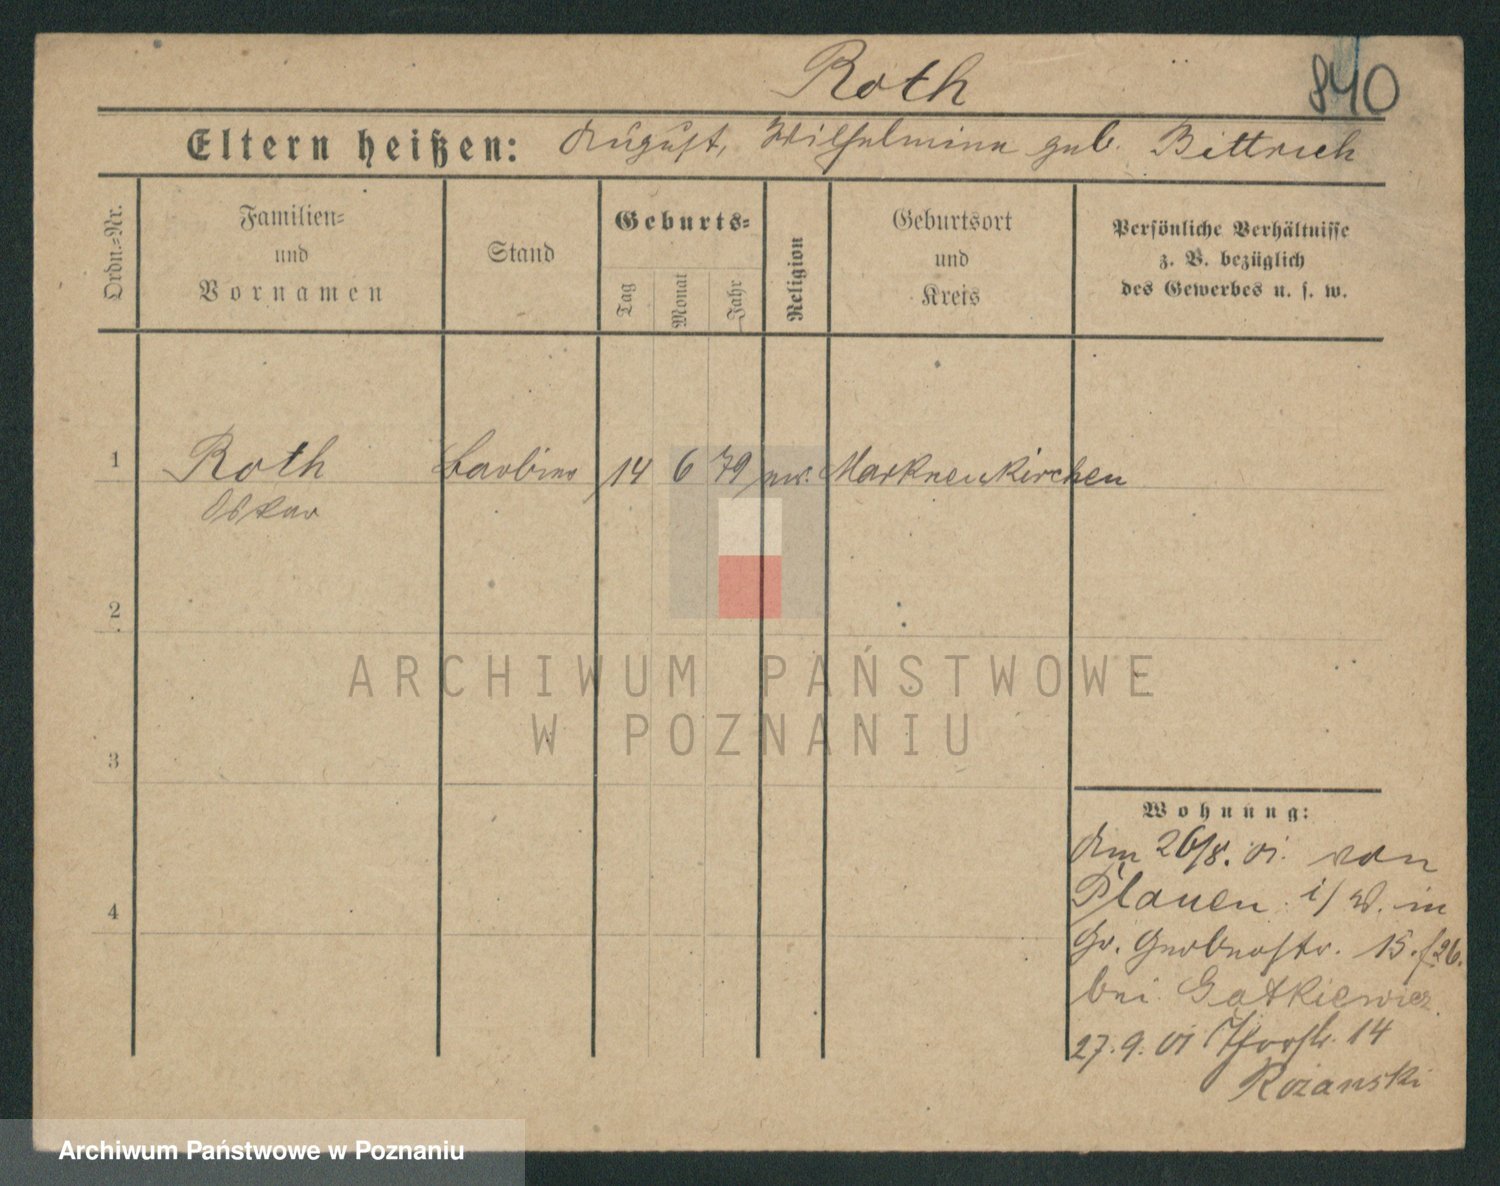 Roth
840
Eltern heißen: August, Wilhelmine geb. Bittrich
Ordn.=Nr.
Familien=
und
Vornamen
Stand
Geburts=
Tag
Monat
Jahr
Religion
Geburtsort
und
Kreis
Persönliche Verhältnisse
z. B. bezüglich
des Gewerbes u. s. w.
1
Roth
Barbier
14
6
79
ev.
Markneukirchen
Oskar
2
ARCHIWUM PAŃSTWOWE
W POZNANIU
3
Wohnung:
Am 26/8. 01. von
4
Plauen i/ V. in
Gr. Gerberstr. 15.
bei Gatkiewicz
27. 9. 01 14
Rozanski
Archiwum Państwowe w Poznaniu